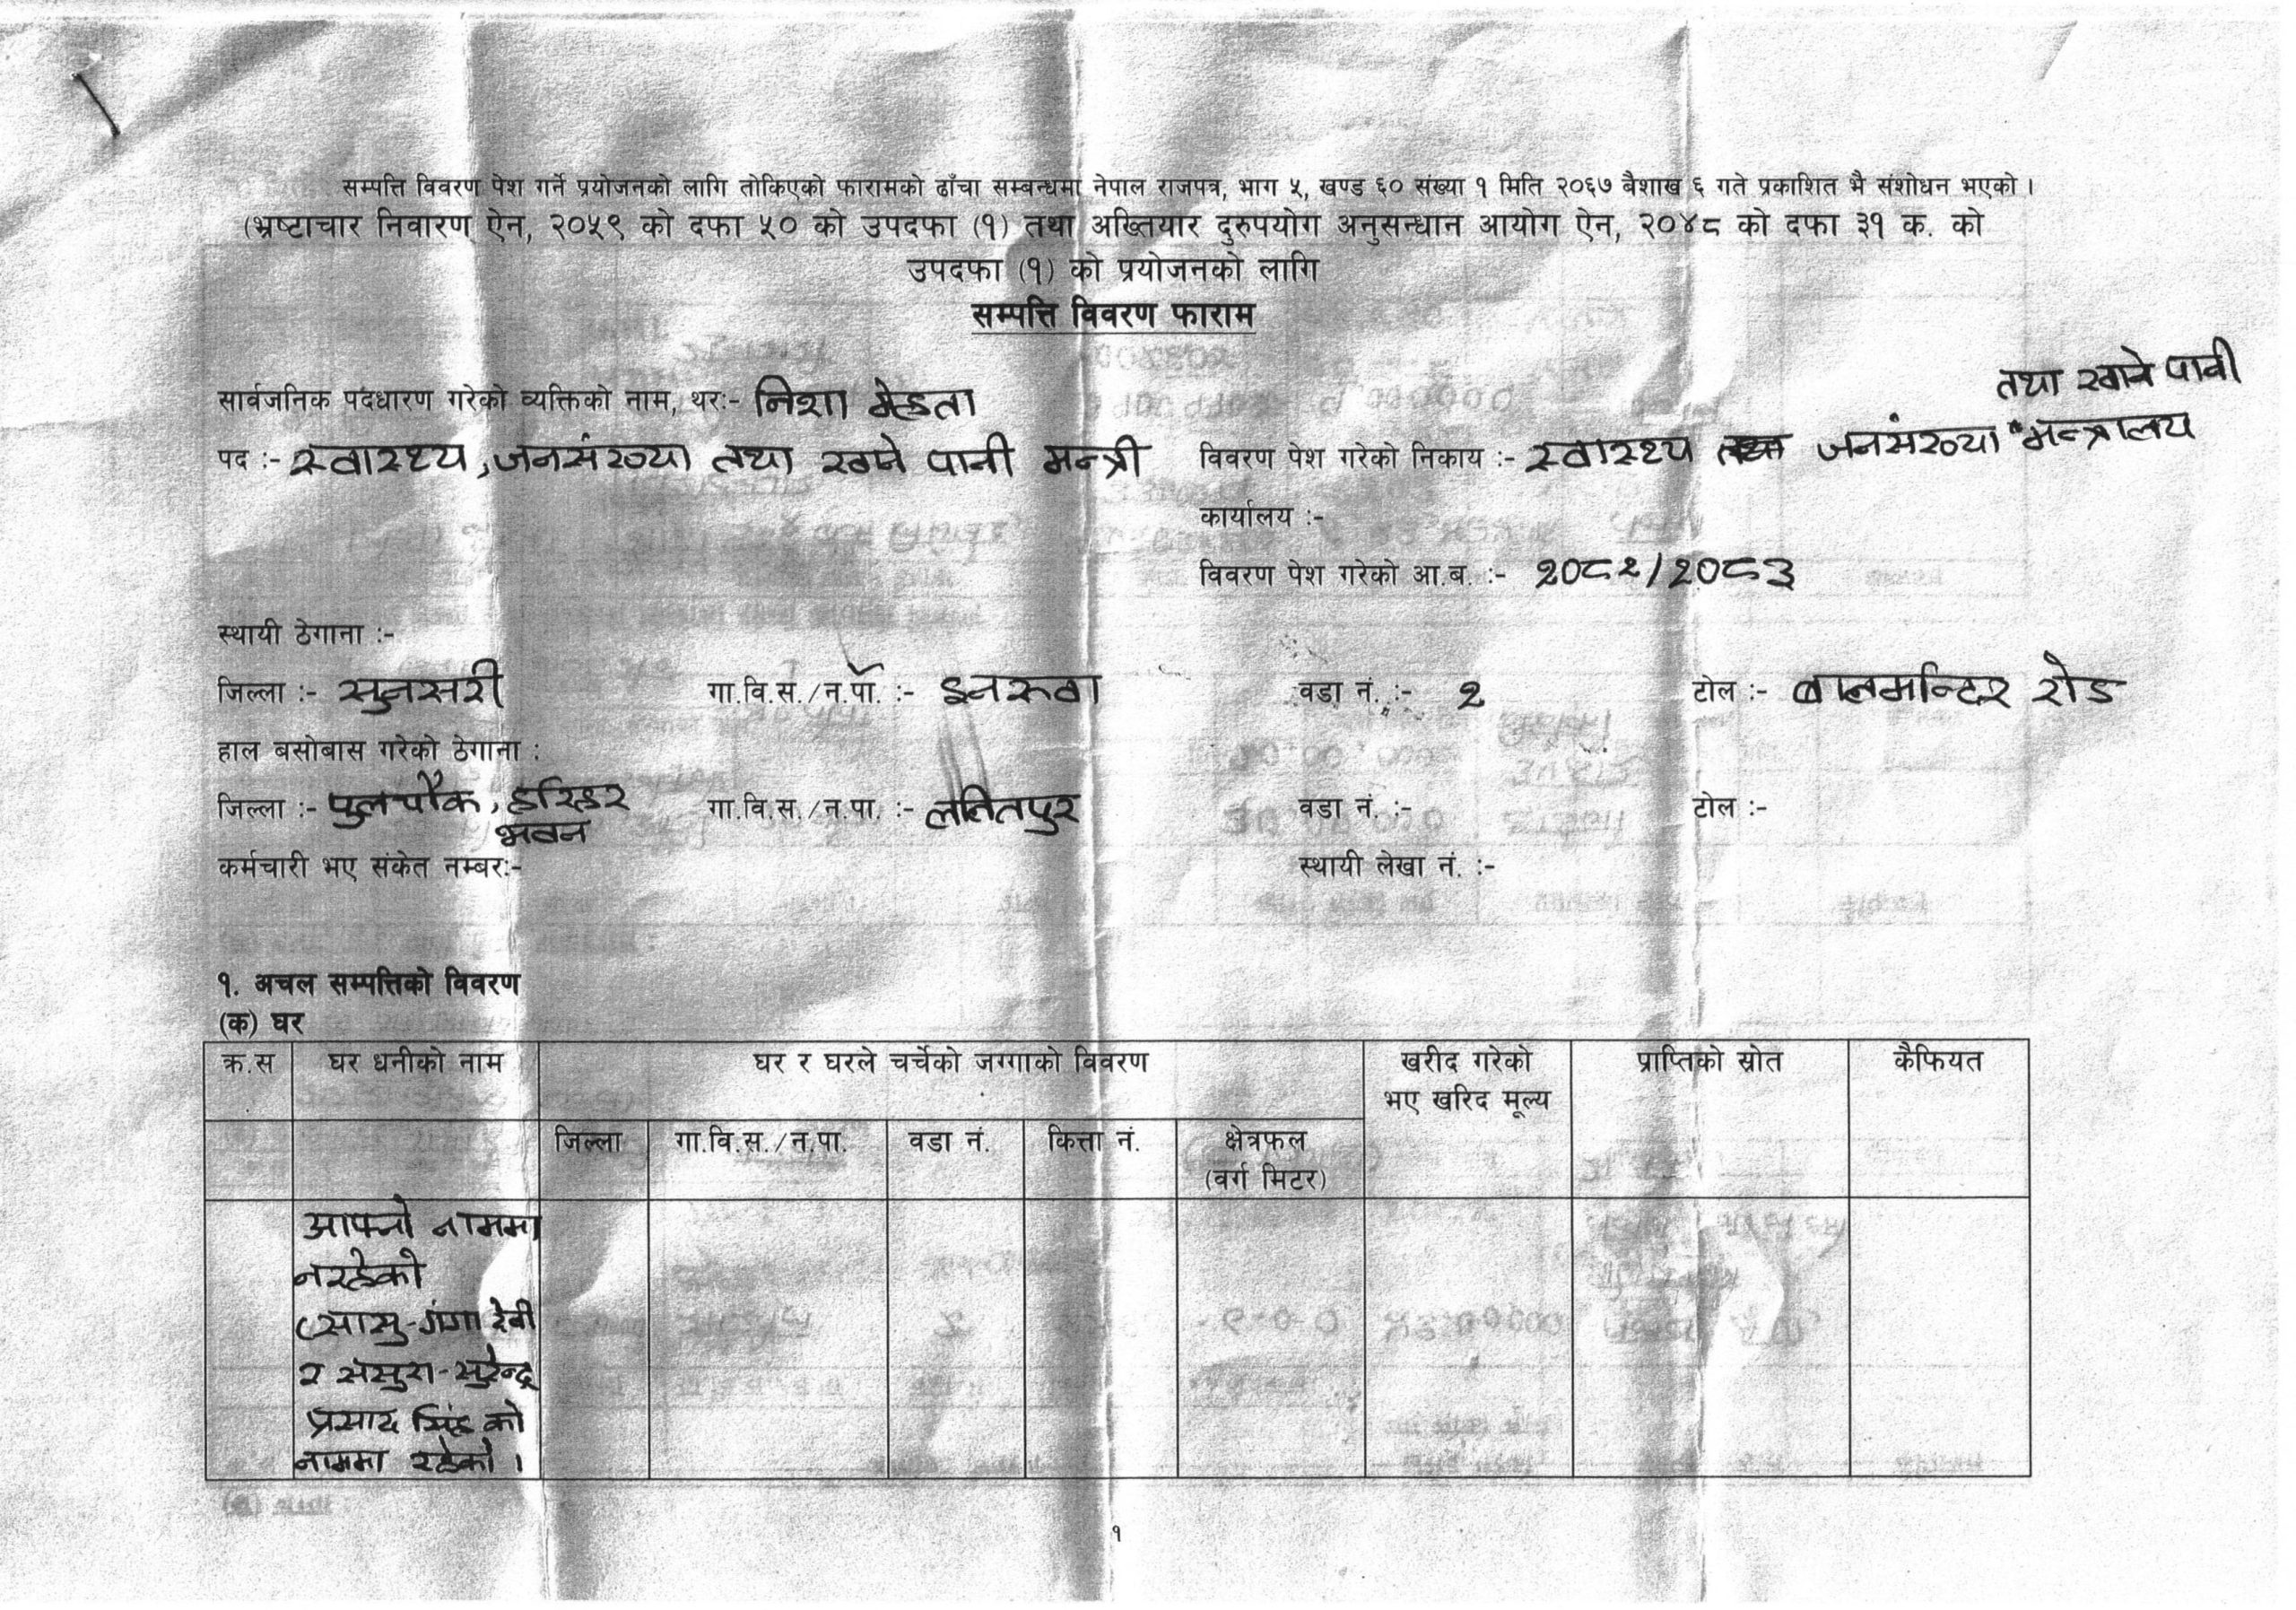 सम्पत्ति विवरण पेश गर्ने प्रयोजनको लागि तोकिएको फारामको ढाँचा सम्बन्धमा नेपाल राजपत्र, भाग ५, खण्ड ६० संख्या १ मिति २०६७ बैशाख ६ गते प्रकाशित भै संशोधन भएको ।
(भ्रष्टाचार निवारण ऐन, २०५९ को दफा ५० को उपदफा (१) तथा अख्तियार दुरुपयोग अनुसन्धान आयोग ऐन, २०४८ को दफा ३१ क. को
उपदफा (१) को प्रयोजनको लागि
सम्पत्ति विवरण फाराम
सार्वजनिक पदधारण गरेको व्यक्तिको नाम, थरः- निशा मेहता
तथा खाने पानी
पद :- स्वास्थ्य, जनसंख्या तथा खाने पानी मन्त्री विवरण पेश गरेको निकाय :- स्वास्थ्य जनसंख्या मन्त्रालय
कार्यालय :-
विवरण पेश गरेको आ.ब. :- २०८२/२०८३
स्थायी ठेगाना :-
जिल्ला :- सुनसरी गा.वि.स./न.पा. :- इनरुवा वडा नं. :- २ टोल :- बालमन्दिर रोड
हाल बसोबास गरेको ठेगाना :
जिल्ला :- पुलचौक, हरिहर भवन गा.वि.स./न.पा. :- ललितपुर वडा नं. :- टोल :-
कर्मचारी भए संकेत नम्बरः- स्थायी लेखा नं. :-
१. अचल सम्पत्तिको विवरण
(क) घर
क्र.स घर धनीको नाम घर र घरले चर्चेको जग्गाको विवरण खरीद गरेको भए खरिद मूल्य प्राप्तिको स्रोत कैफियत
जिल्ला गा.वि.स./न.पा. वडा नं. कित्ता नं. क्षेत्रफल (वर्ग मिटर)
आफ्नो नाममा
नरहेको
(सासु-गंगा देवी
र ससुरा-सुरेन्द्र
प्रसाद सिंह को
नाममा रहेको ।
१